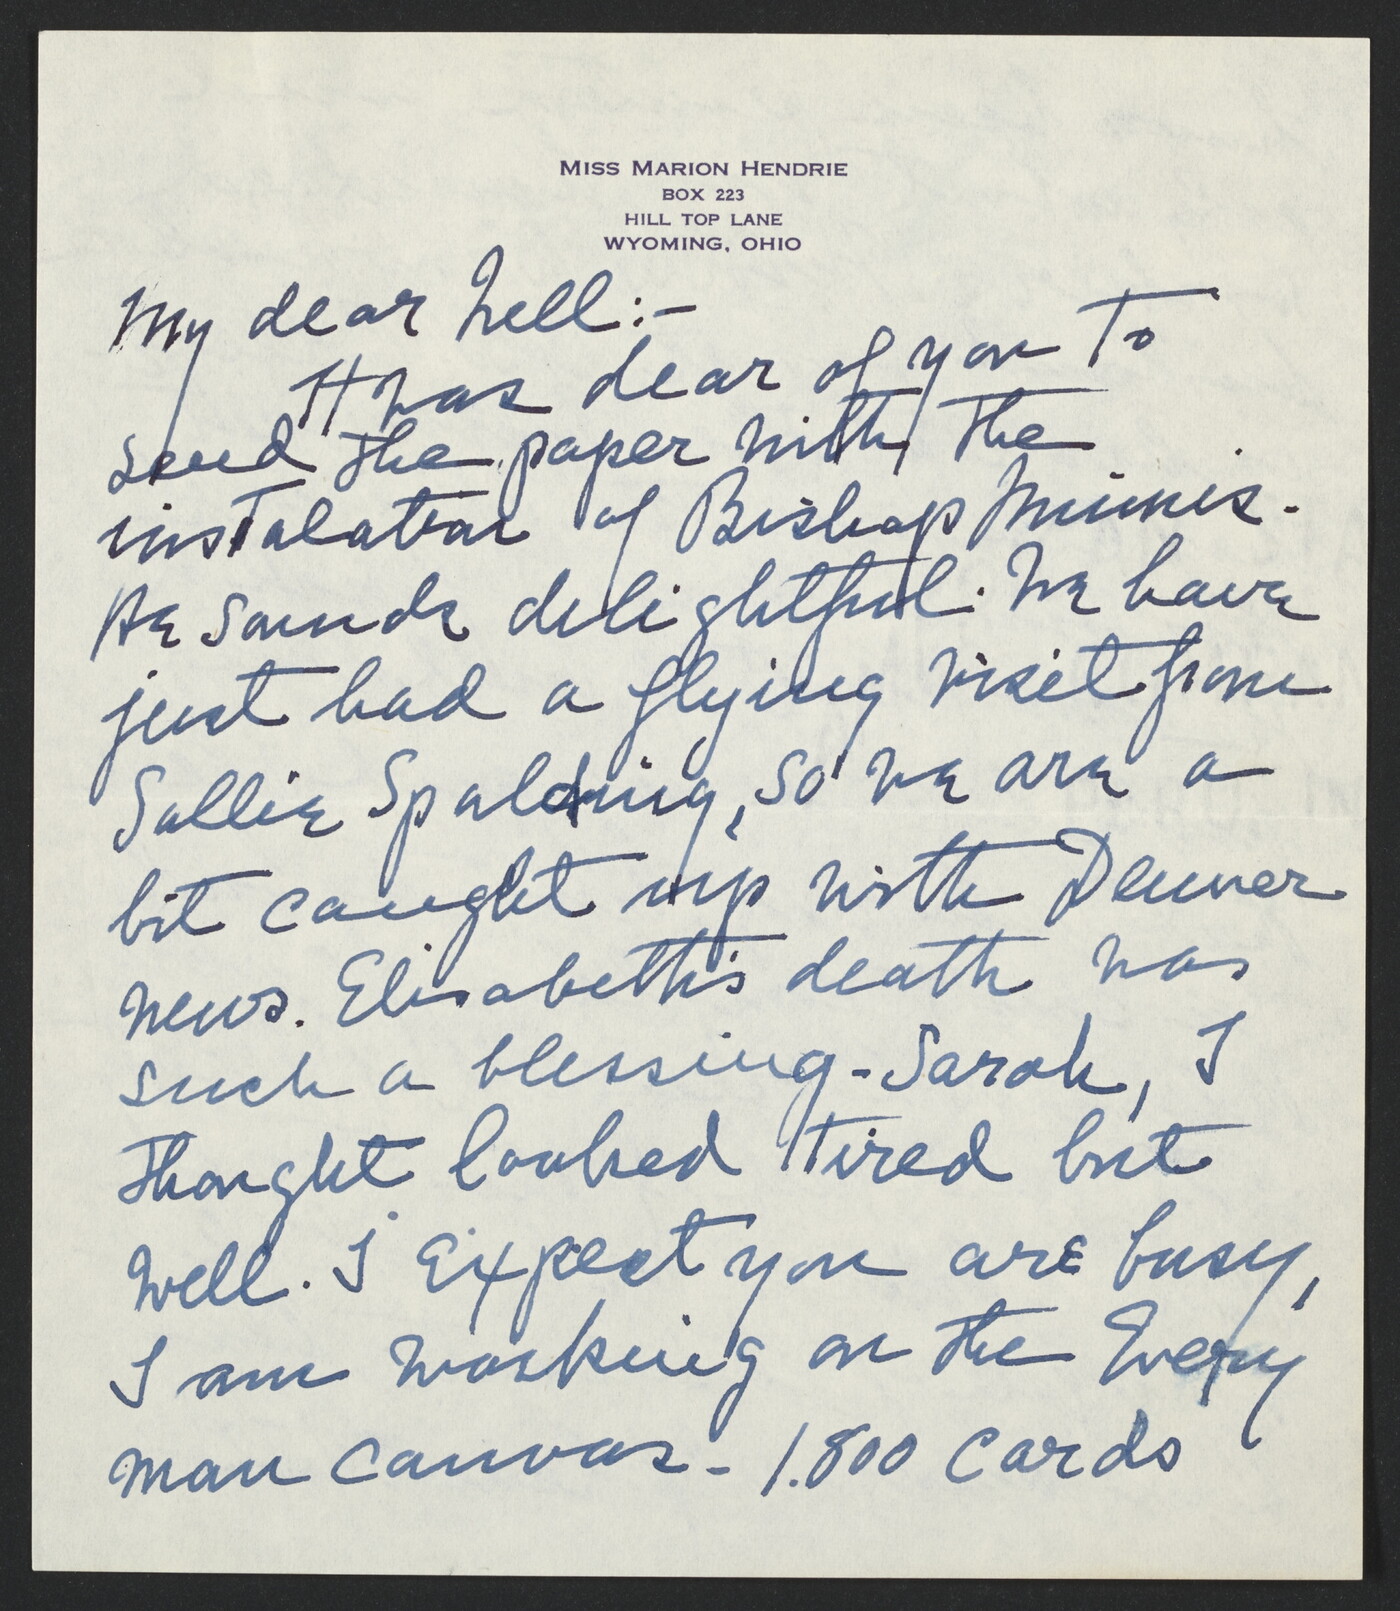 MISS MARION HENDRIE
BOX 223
HILL TOP LANE
WYOMING, OHIO
My dear Nell:-
It was dear of you to
send the paper with the
instalation of Bishop Minnis.
He sounds delightful. We have
just had a flying visit from
Sallie Spalding, so we are a
bit caught up with Denver
news. Elisabeth's death was
such a blessing - Sarah, I
thought looked tired but
well. I expect you are busy,
I am working on the Every
man canvas - 1.800 cards